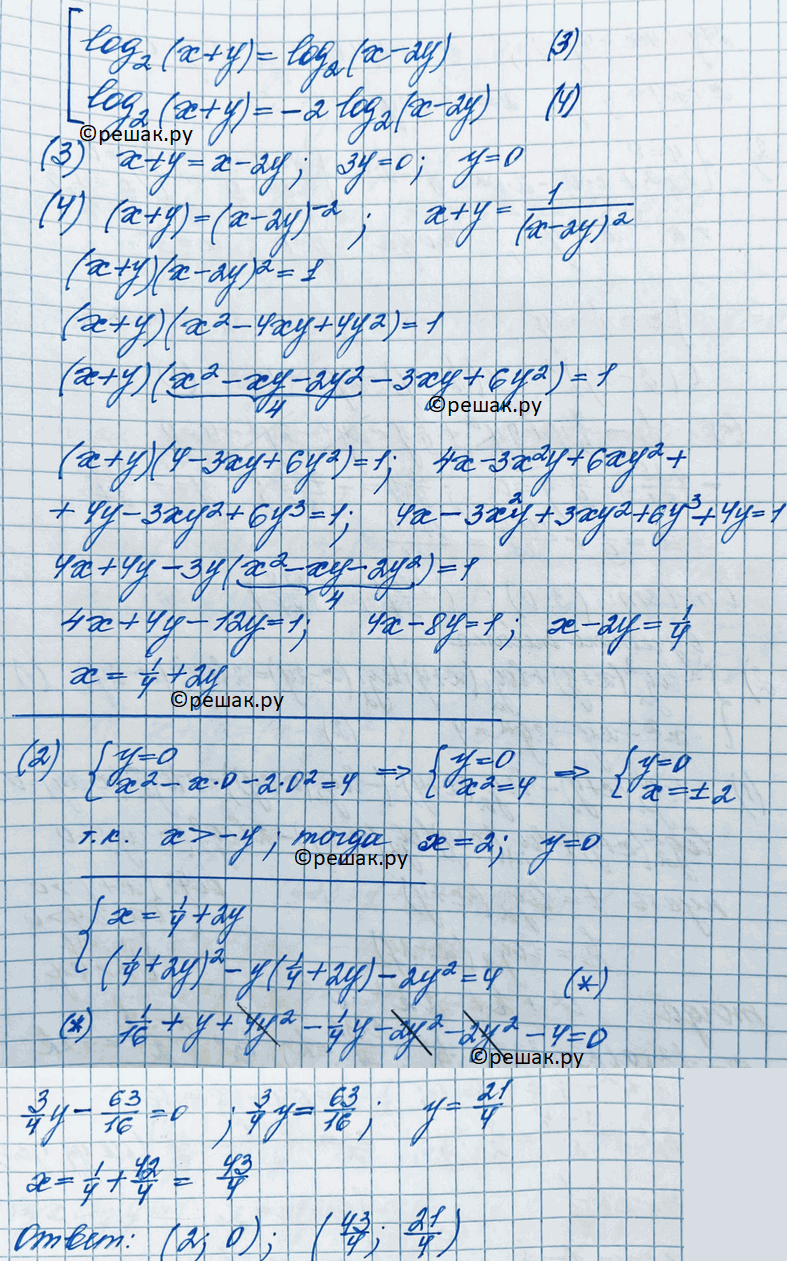 log₂(x+y) = log₂(x-2y) (3)
log₂(x+y) = -2 log₂(x-2y) (4)
©решак.ру
(3) x+y = x-2y; 3y=0; y=0
(4) (x+y) = (x-2y)⁻²; x+y = 1/(x-2y)²
(x+y)(x-2y)² = 1
(x+y)(x²-4xy+4y²) = 1
(x+y)(x²-xy-2y²-3xy+6y²) = 1
4
©решак.ру
(x+y)(4-3xy+6y²)=1; 4x-3x²y+6xy²+
+4y-3xy²+6y³=1; 4x-3x²y+3xy²+6y³+4y=1
4x+4y-3y(x²-xy-2y²)=1
4
4x+4y-12y=1; 4x-8y=1; x-2y=1/4
x = 1/4 + 2y
©решак.ру
(2) { y=0 => { y=0 => { y=0
x²-x·0-2·0²=4 x²=4 x=±2
т.к. x>-y; тогда x=2; y=0
©решак.ру
{ x = 1/4 + 2y
(1/4+2y)² - y(1/4+2y) - 2y² = 4 (*)
(*) 1/16 + y + 4y² - 1/4y - 2y² - 2y² - 4 = 0
©решак.ру
3/4y - 63/16 = 0; 3/4y = 63/16; y = 21/4
x = 1/4 + 42/4 = 43/4
Ответ: (2; 0); (43/4; 21/4)